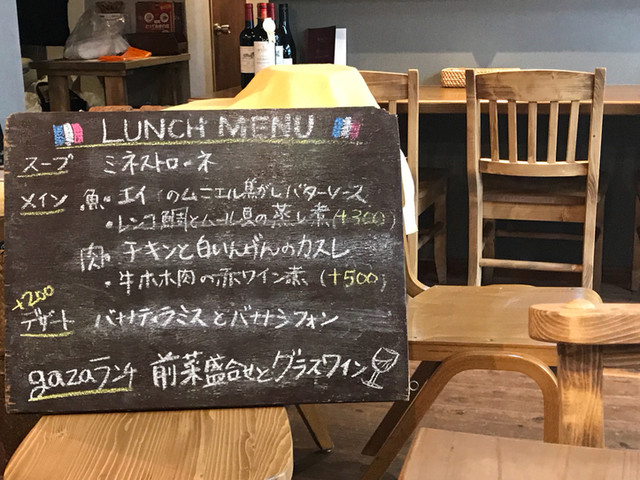 LUNCH MENU
スープ ミネストローネ
メイン 魚・エイのムニエル焦がしバターソース
・レンコ鯛とムール貝の蒸し煮(+300)
肉・チキンと白いんげんのカスレ
・牛ホホ肉の赤ワイン煮(+500)
+200
デザート バナナティラミスとバナナシフォン
gazaランチ 前菜盛合せとグラスワイン